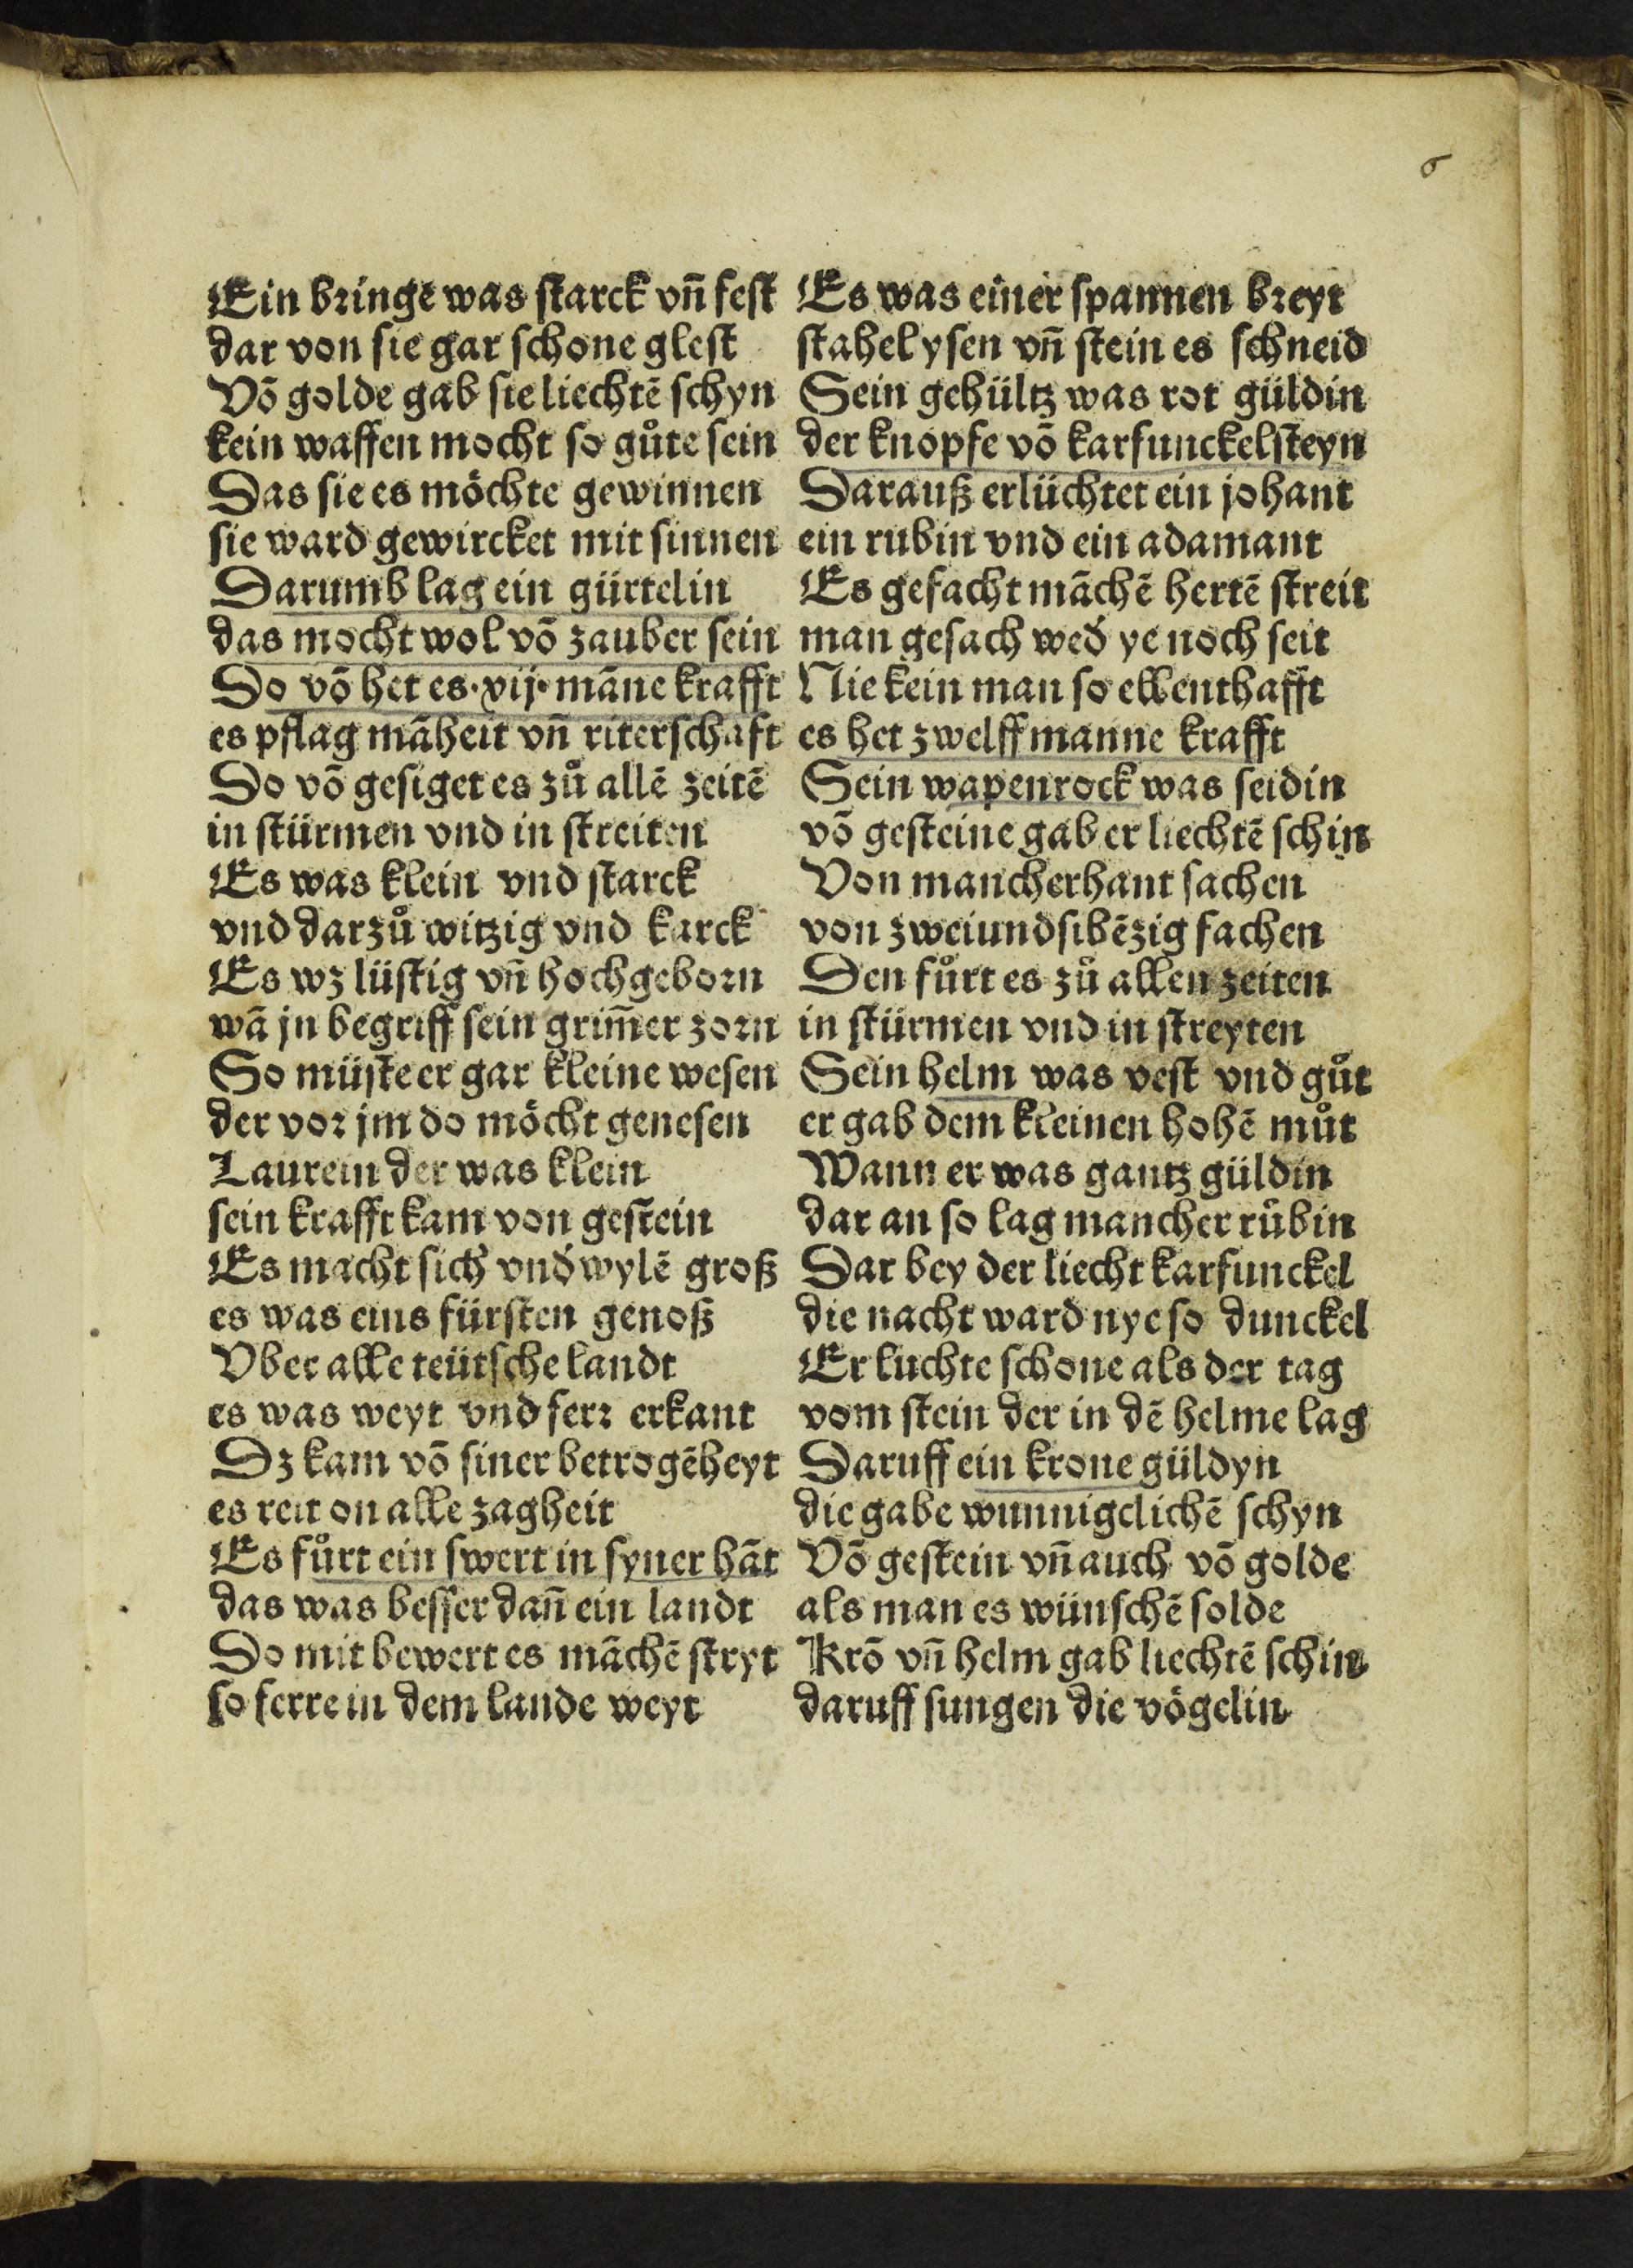 6
Ein bringē was starck vn̄ fest
dar von sie gar schone glest
Võ golde gab sie liechtē schyn
kein waffen mocht so gůte sein
Das sie es möchte gewinnen
sie ward gewircket mit sinnen
Darumb lag ein gürtelin
das mocht wol võ zauber sein
Do võ het es·xij·mãne krafft
es pflag mãheit vn̄ riterschaft
Do võ gesiget es zů allē zeitē
in stürmen vnd in streiten
Es was klein vnd starck
vnd darzů witzig vnd karck
Es wz lüstig vn̄ hochgeborn
wã jn begriff sein grim̄er zorn
So müste er gar kleine wesen
der vor jm do möcht genesen
Laurein der was klein
sein krafft kam von gestein
Es macht sich vnd̕ wylē groß
es was eins fürsten genoß
Vber alle teütsche landt
es was weyt vnd ferr erkant
Dz kam võ siner betrogēheyt
es reit on alle zagheit
Es fůrt ein swert in syner hãt
das was besser dan̄ ein landt
Do mit bewert es mãchē stryt
so ferre in dem lande weyt
Es was einer spannen breyt
stahel ysen vn̄ stein es schneid
Sein gehültz was rot güldin
der knopfe võ karfunckelsteyn
Darauß erlüchtet ein johant
ein rubin vnd ein adamant
Es gefacht mãchē hertē streit
man gesach wed̕ ye noch seit
Nie kein man so ellenthafft
es het zwelff manne krafft
Sein wapenrock was seidin
võ gesteine gab er liechtē schin
Von mancherhant sachen
von zweiundsibēzig fachen
Den fůrt es zů allen zeiten
in stürmen vnd in streyten
Sein helm was vest vnd gůt
er gab dem kleinen hohē můt
Wann er was gantz güldin
dar an so lag mancher růbin
Dar bey der liecht karfunckel
die nacht ward nye so dunckel
Er luchte schone als der tag
vom stein der in dē helme lag
Daruff ein krone güldyn
die gabe wunnigclichē schyn
Võ gestein vn̄ auch võ golde
als man es wünschē solde
Krõ vn̄ helm gab liechtē schin
daruff sungen die vögelin